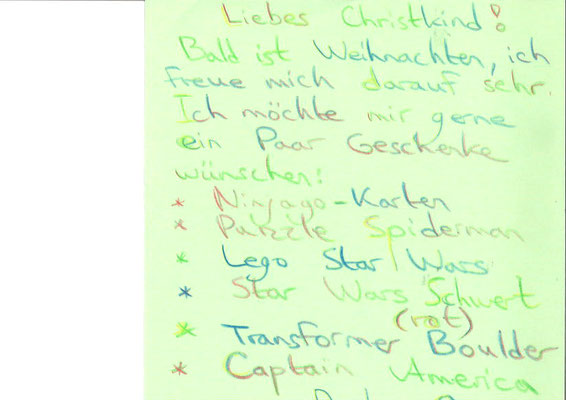 Liebes Christkind!
Bald ist Weihnachten, ich
freue mich darauf sehr.
Ich möchte mir gerne
ein Paar Geschenke
wünschen:
* Ninjago-Karten
* Puzzle Spiderman
* Lego Star Wars
* Star Wars Schwert
(rot)
* Transformer Boulder
* Captain America